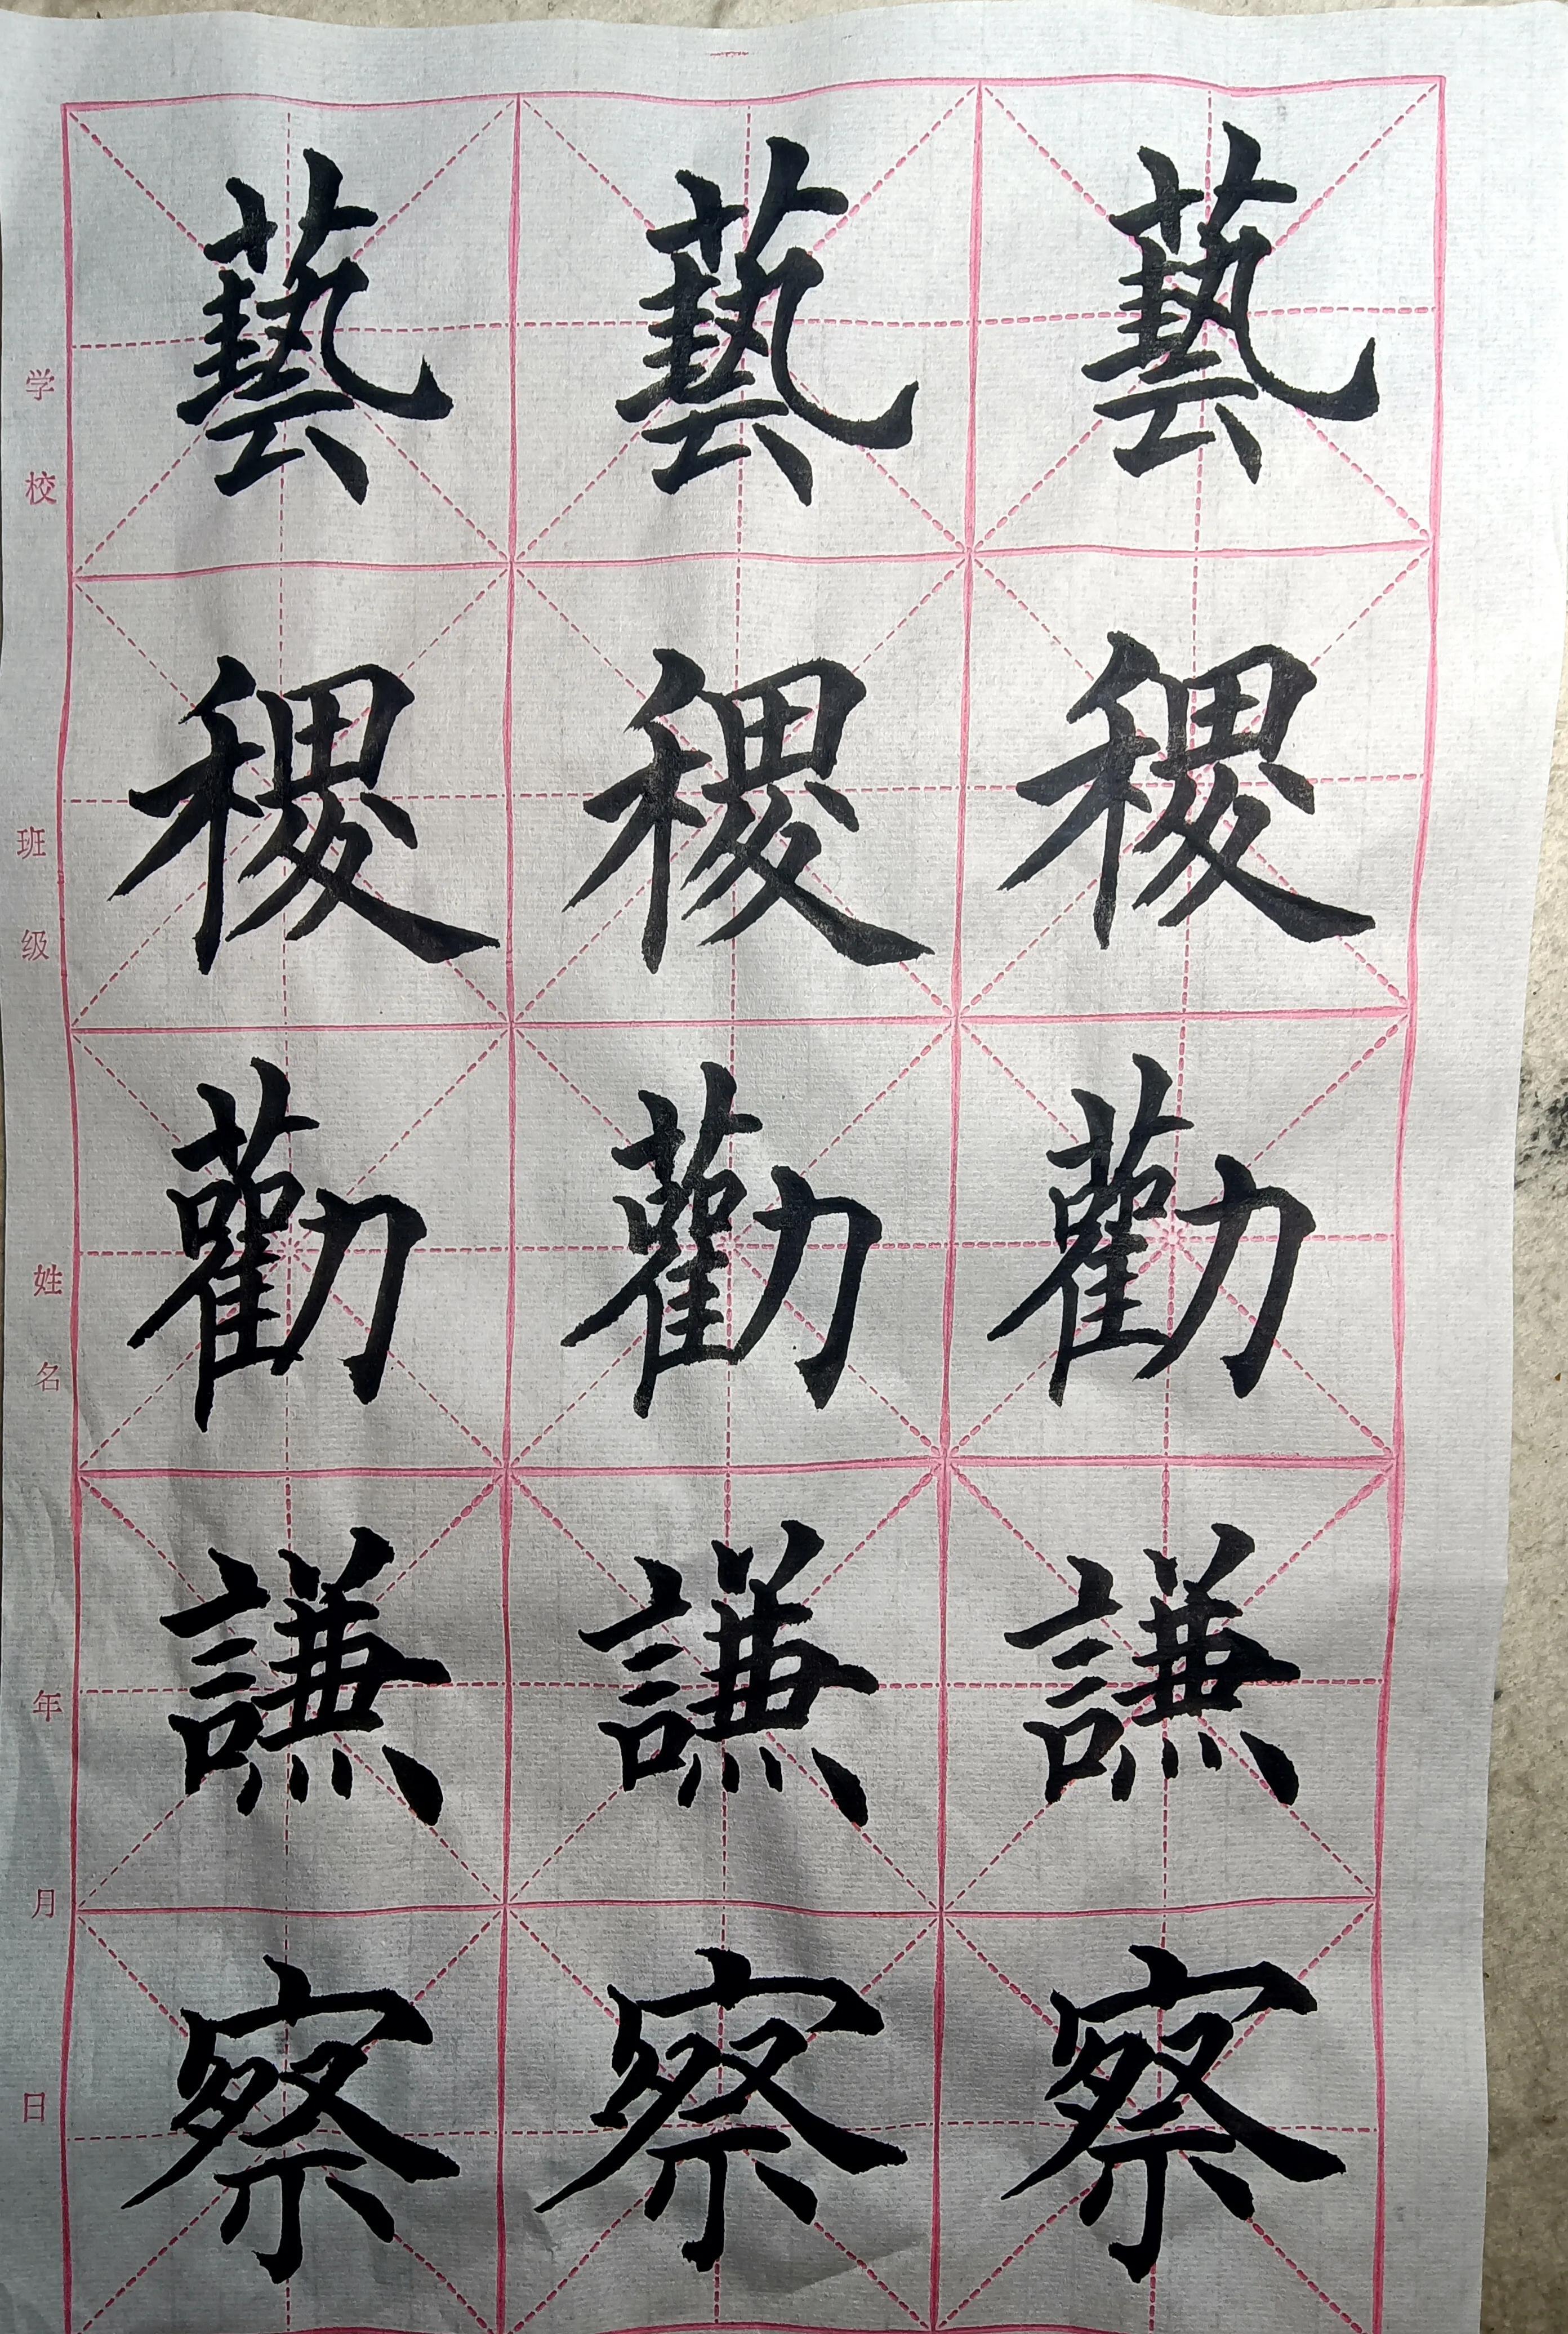 藝藝藝
稷稷稷
勸勸勸
謙謙謙
察察察
学校
班级
姓名
年
月
日